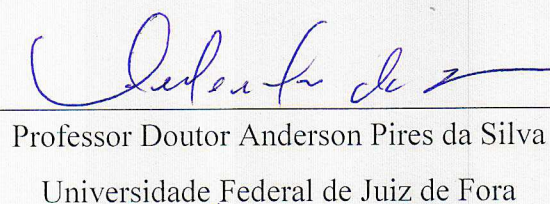 Professor Doutor Anderson Pires da Silva
Universidade Federal de Juiz de Fora